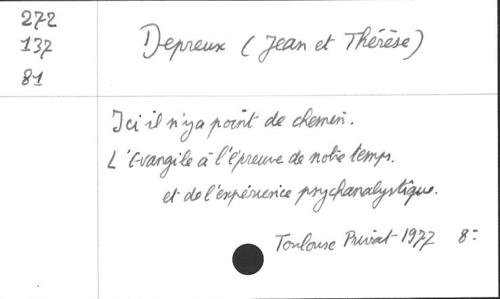 272
137
81
Depreux (Jean et Thérèse)
Ici il n'y a point de chemin.
L'Evangile à l'épreuve de notre temps.
et de l'expérience psychanalystique.
Toulouse Privat 1977 8°